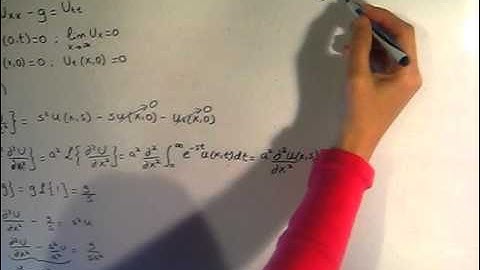 Uxx - g = Utt
(0,t)=0 ; lim x→∞ Ux=0
(x,0)=0 ; Ut(x,0)=0
)
} = s²u(x,s) - su(x,0)→0 - ut(x,0)→0
{∂²U/∂x²} = a² ℒ{∂²U/∂x²} = a² ∂²/∂x² ∫₀^∞ e^-st u(x,t)dt = a² ∂²u(x,s)/∂x²
g} = gℒ{1} = g/s
∂²U/∂x² - g/s = s²u
∂²U/∂x² - s²U/a² = g/sa²